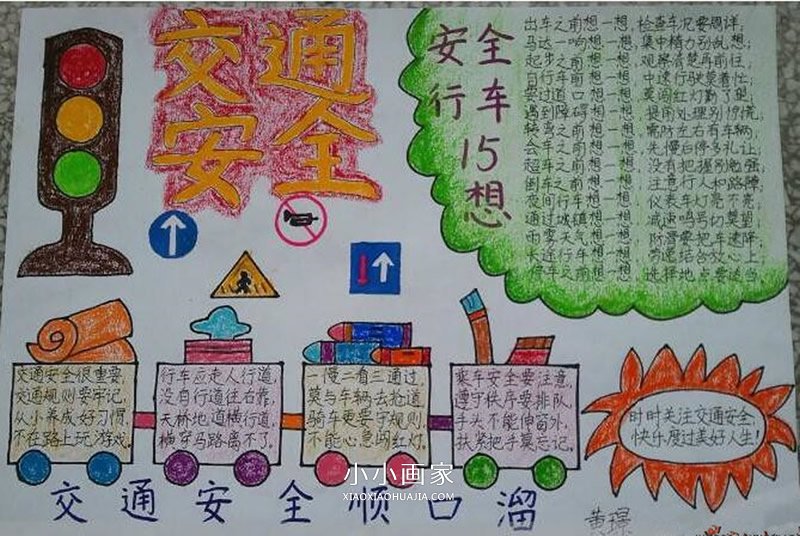 交通
安全
安全
行车
15
想
出车之前想一想,检查车况要周详;
马达一响想一想,集中精力别乱想;
起步之前想一想,观察清楚再前往;
自行车前想一想,中速行驶莫着忙;
要过道口想一想,莫闯红灯勤了望;
遇到障碍想一想,提前处理别惊慌;
转弯之前想一想,需防左右有车辆;
会车之前想一想,先慢后停多礼让;
超车之前想一想,没有把握别勉强;
倒车之前想一想,注意行人和路障;
夜间行车想一想,仪表车灯亮不亮;
通过城镇想一想,减速鸣号仃莫望;
雨雾天气想一想,防滑要把车速降;
长途行车想一想,
停车之前想一想,选择地点要适当
交通安全很重要,
交通规则要牢记,
从小养成好习惯,
不在路上玩游戏。
行车应走人行道,
没有行道往右靠,
天桥地道横行道,
横穿马路离不了。
一慢二看三通过,
莫与车辆去抢道,
骑车更要守规则,
不能心急闯红灯。
乘车安全要注意,
遵守秩序要排队,
手头不能伸窗外,
扶紧把手莫忘记。
时时关注交通安全,
快乐度过美好人生!
交通安全顺口溜
小小画家
XIAOXIAOHUAJIA.COM
黄璟